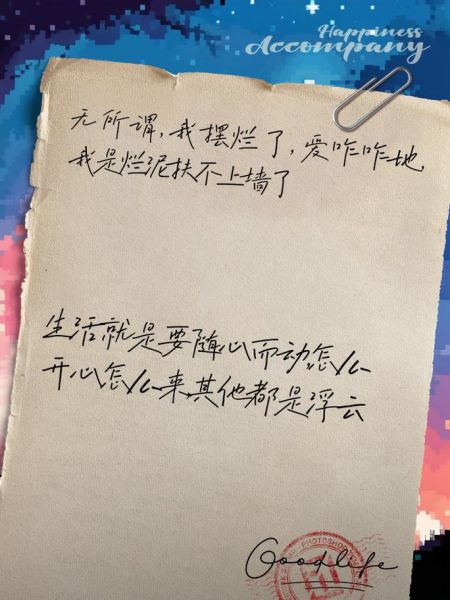 Happiness
Accompany
无所谓,我摆烂了,爱咋咋地
我是烂泥扶不上墙了
生活就是要随心而动怎么
开心怎么来,其他都是浮云
PHOTOSHOP
Goodlife